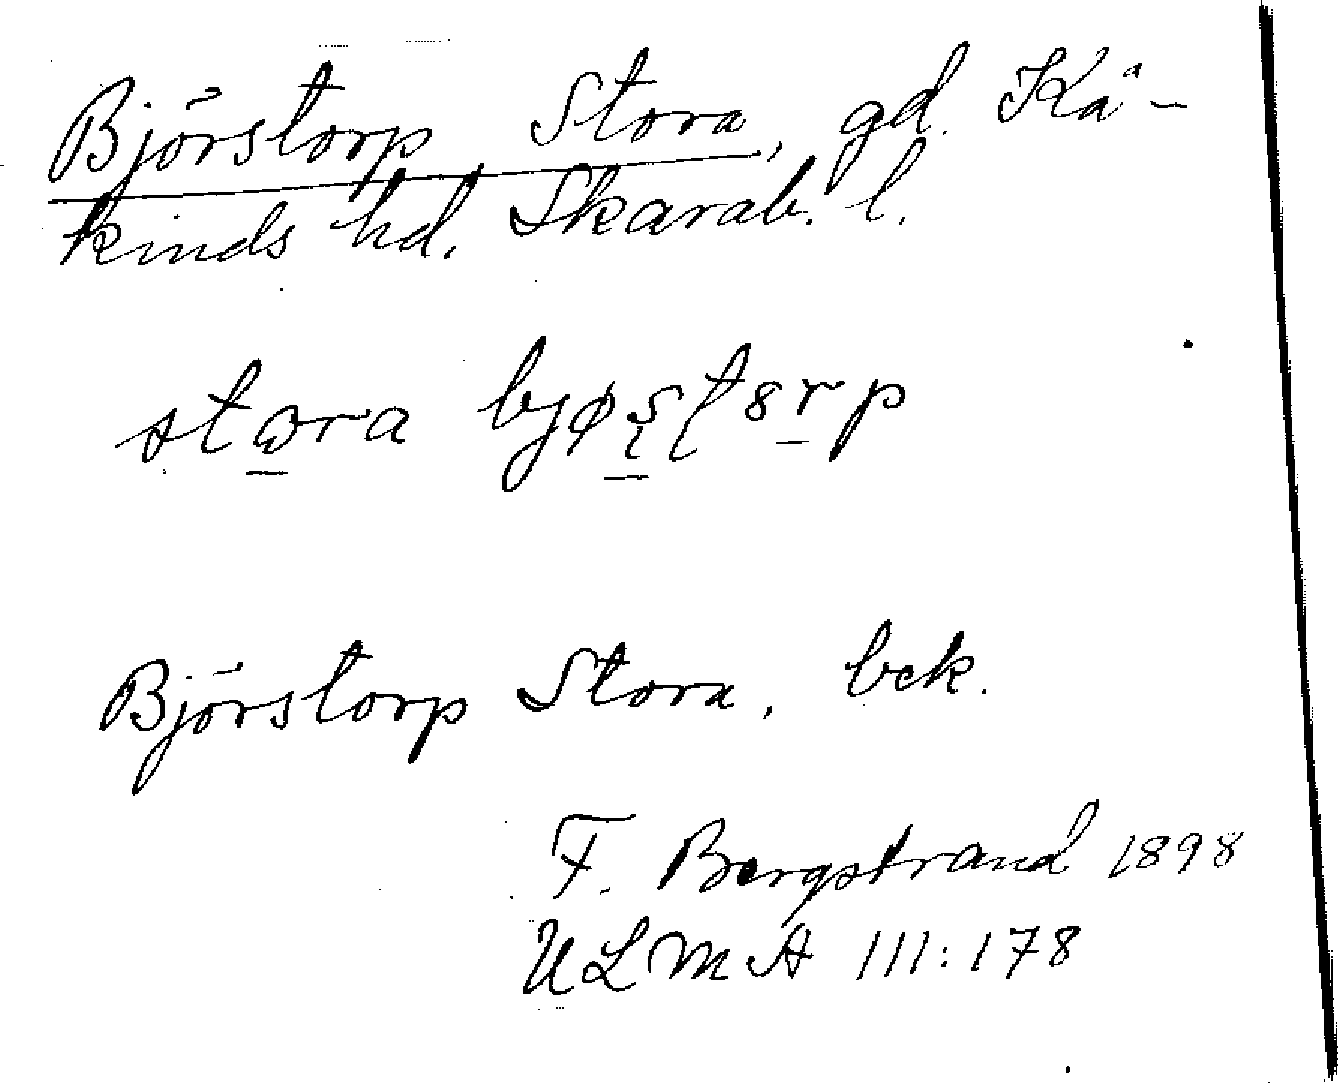 Björstorp Stora, gd. Kå-
kinds hd. Skarab. l.
stɷra bjøʂʈ8rp
Björstorp Stora, bek.
F. Bergstrand 1898
ULMA 111:178